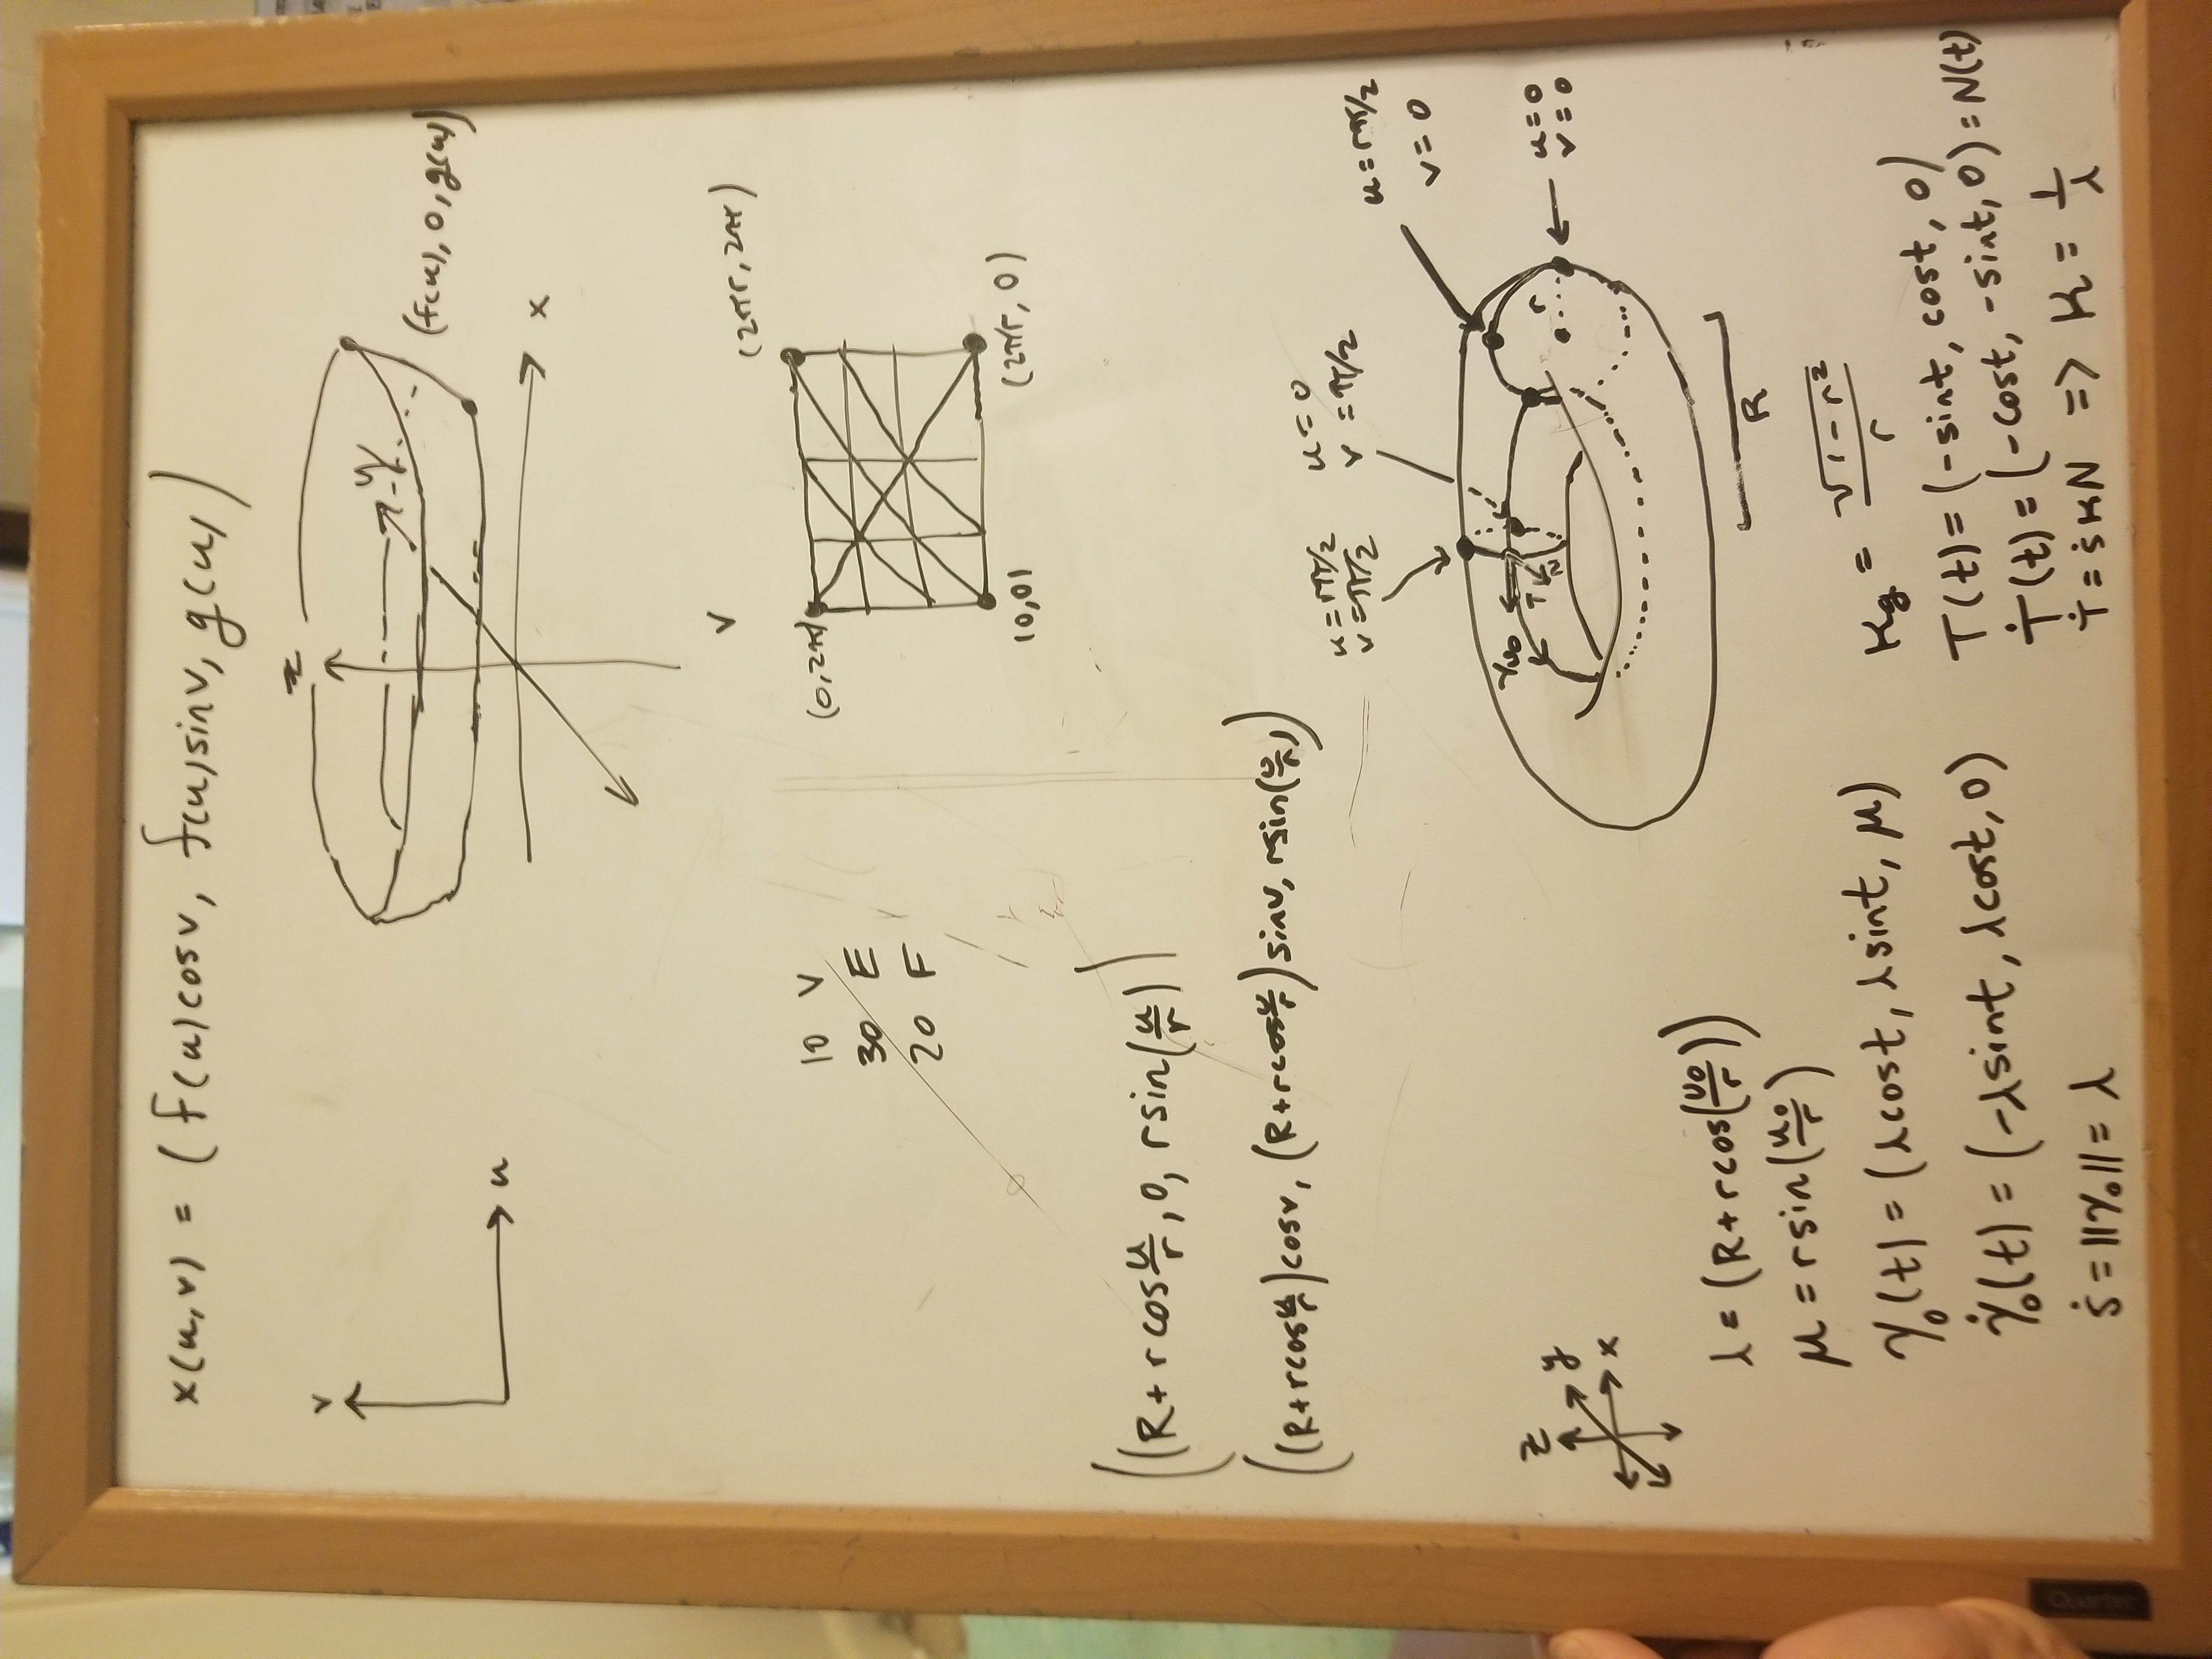 x(u,v) = (f(u)cosv, f(u)sinv, g(u))
z
v
y
(f(u), 0, g(u))
u
x
v
(2πr, 2π)
10 V
(0,2π)
30 E
20 F
(0,0)
(2πr, 0)
((R+rcos u/r, 0, rsin(u/r))
((R+rcos u/r)cosv, (R+rcos u/r)sinv, rsin(u/r))
u=rπ/2
v=π/2
u=0
v=π/2
u=rπ/2
v=0
γu0
T
N
r
u=0
v=0
z
y
x
R
λ = (R+rcos(u0/r))
μ = rsin(u0/r)
γ0(t) = (λcost, λsint, μ)
γ̇0(t) = (-λsint, λcost, 0)
ṡ = ||γ0|| = λ
Kg = √1-r²/r
T(t) = (-sint, cost, 0)
Ṫ(t) = (-cost, -sint, 0) = N(t)
Ṫ = ṡKN => K = 1/λ
Quartet